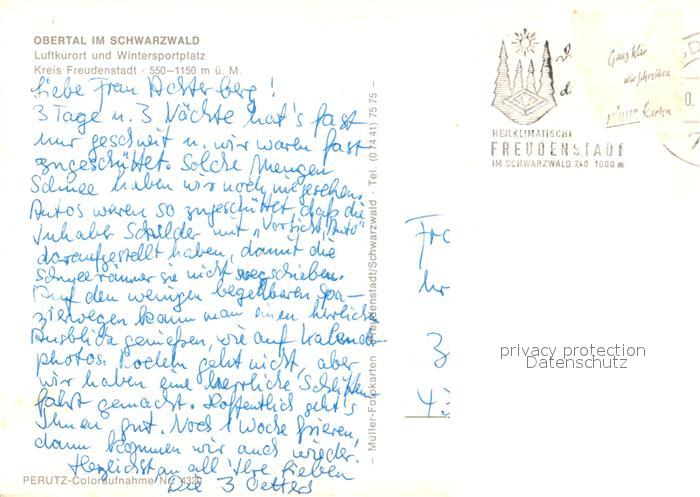 OBERTAL IM SCHWARZWALD
Luftkurort und Wintersportplatz
Kreis Freudenstadt · 550–1150 m ü. M.
Liebe Frau Achterberg!
3 Tage u. 3 Nächte hat's fast
nur geschneit u. wir waren fast
zugeschüttet. Solche Mengen
Schnee haben wir noch nie gesehen.
Autos waren so zugeschüttet, daß die
Inhaber Schilder mit „Vorsicht Auto"
daraufgestellt haben, damit die
Schneeräumer sie nicht wegschieben.
Auf den wenigen begehbaren Spa-
zierwegen kann man einen herrlichen
Ausblick genießen, wie auf Kalender
photos. Rodeln geht nicht, aber
wir haben eine herrliche Schlitten
fahrt gemacht. Hoffentlich geht's
Ihnen gut. Noch 1 Woche frieren,
dann kommen wir auch wieder.
Herzlichst an all Ihre Lieben
Die 3 Oetters
PERUTZ-Coloraufnahme Nr. 4320
– Müller-Fotokarten · Freudenstadt/Schwarzwald · Tel. (0 74 41) 75 75 –
HEILKLIMATISCH
FREUDENSTADT
IM SCHWARZWALD 740 1000 m
Ganz klar
wir schreiben
Karten
Fr
3
43
privacy protection
Datenschutz